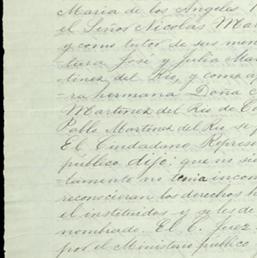 Maria de los Angeles
el Señor Nicolás Mar
y como tutor de sus meno
José y Julia Mar
tinez del Rio, y como a
ra hermana Doña
Martinez del Rio de
Pablo Martinez del Rio se
El Ciudadano Repres
público dijo: que no si
tamente no tenia incon
reconocieran los derechos h
el instituidos y se les de
nombrado. El C. Juez
por el Ministerio publico